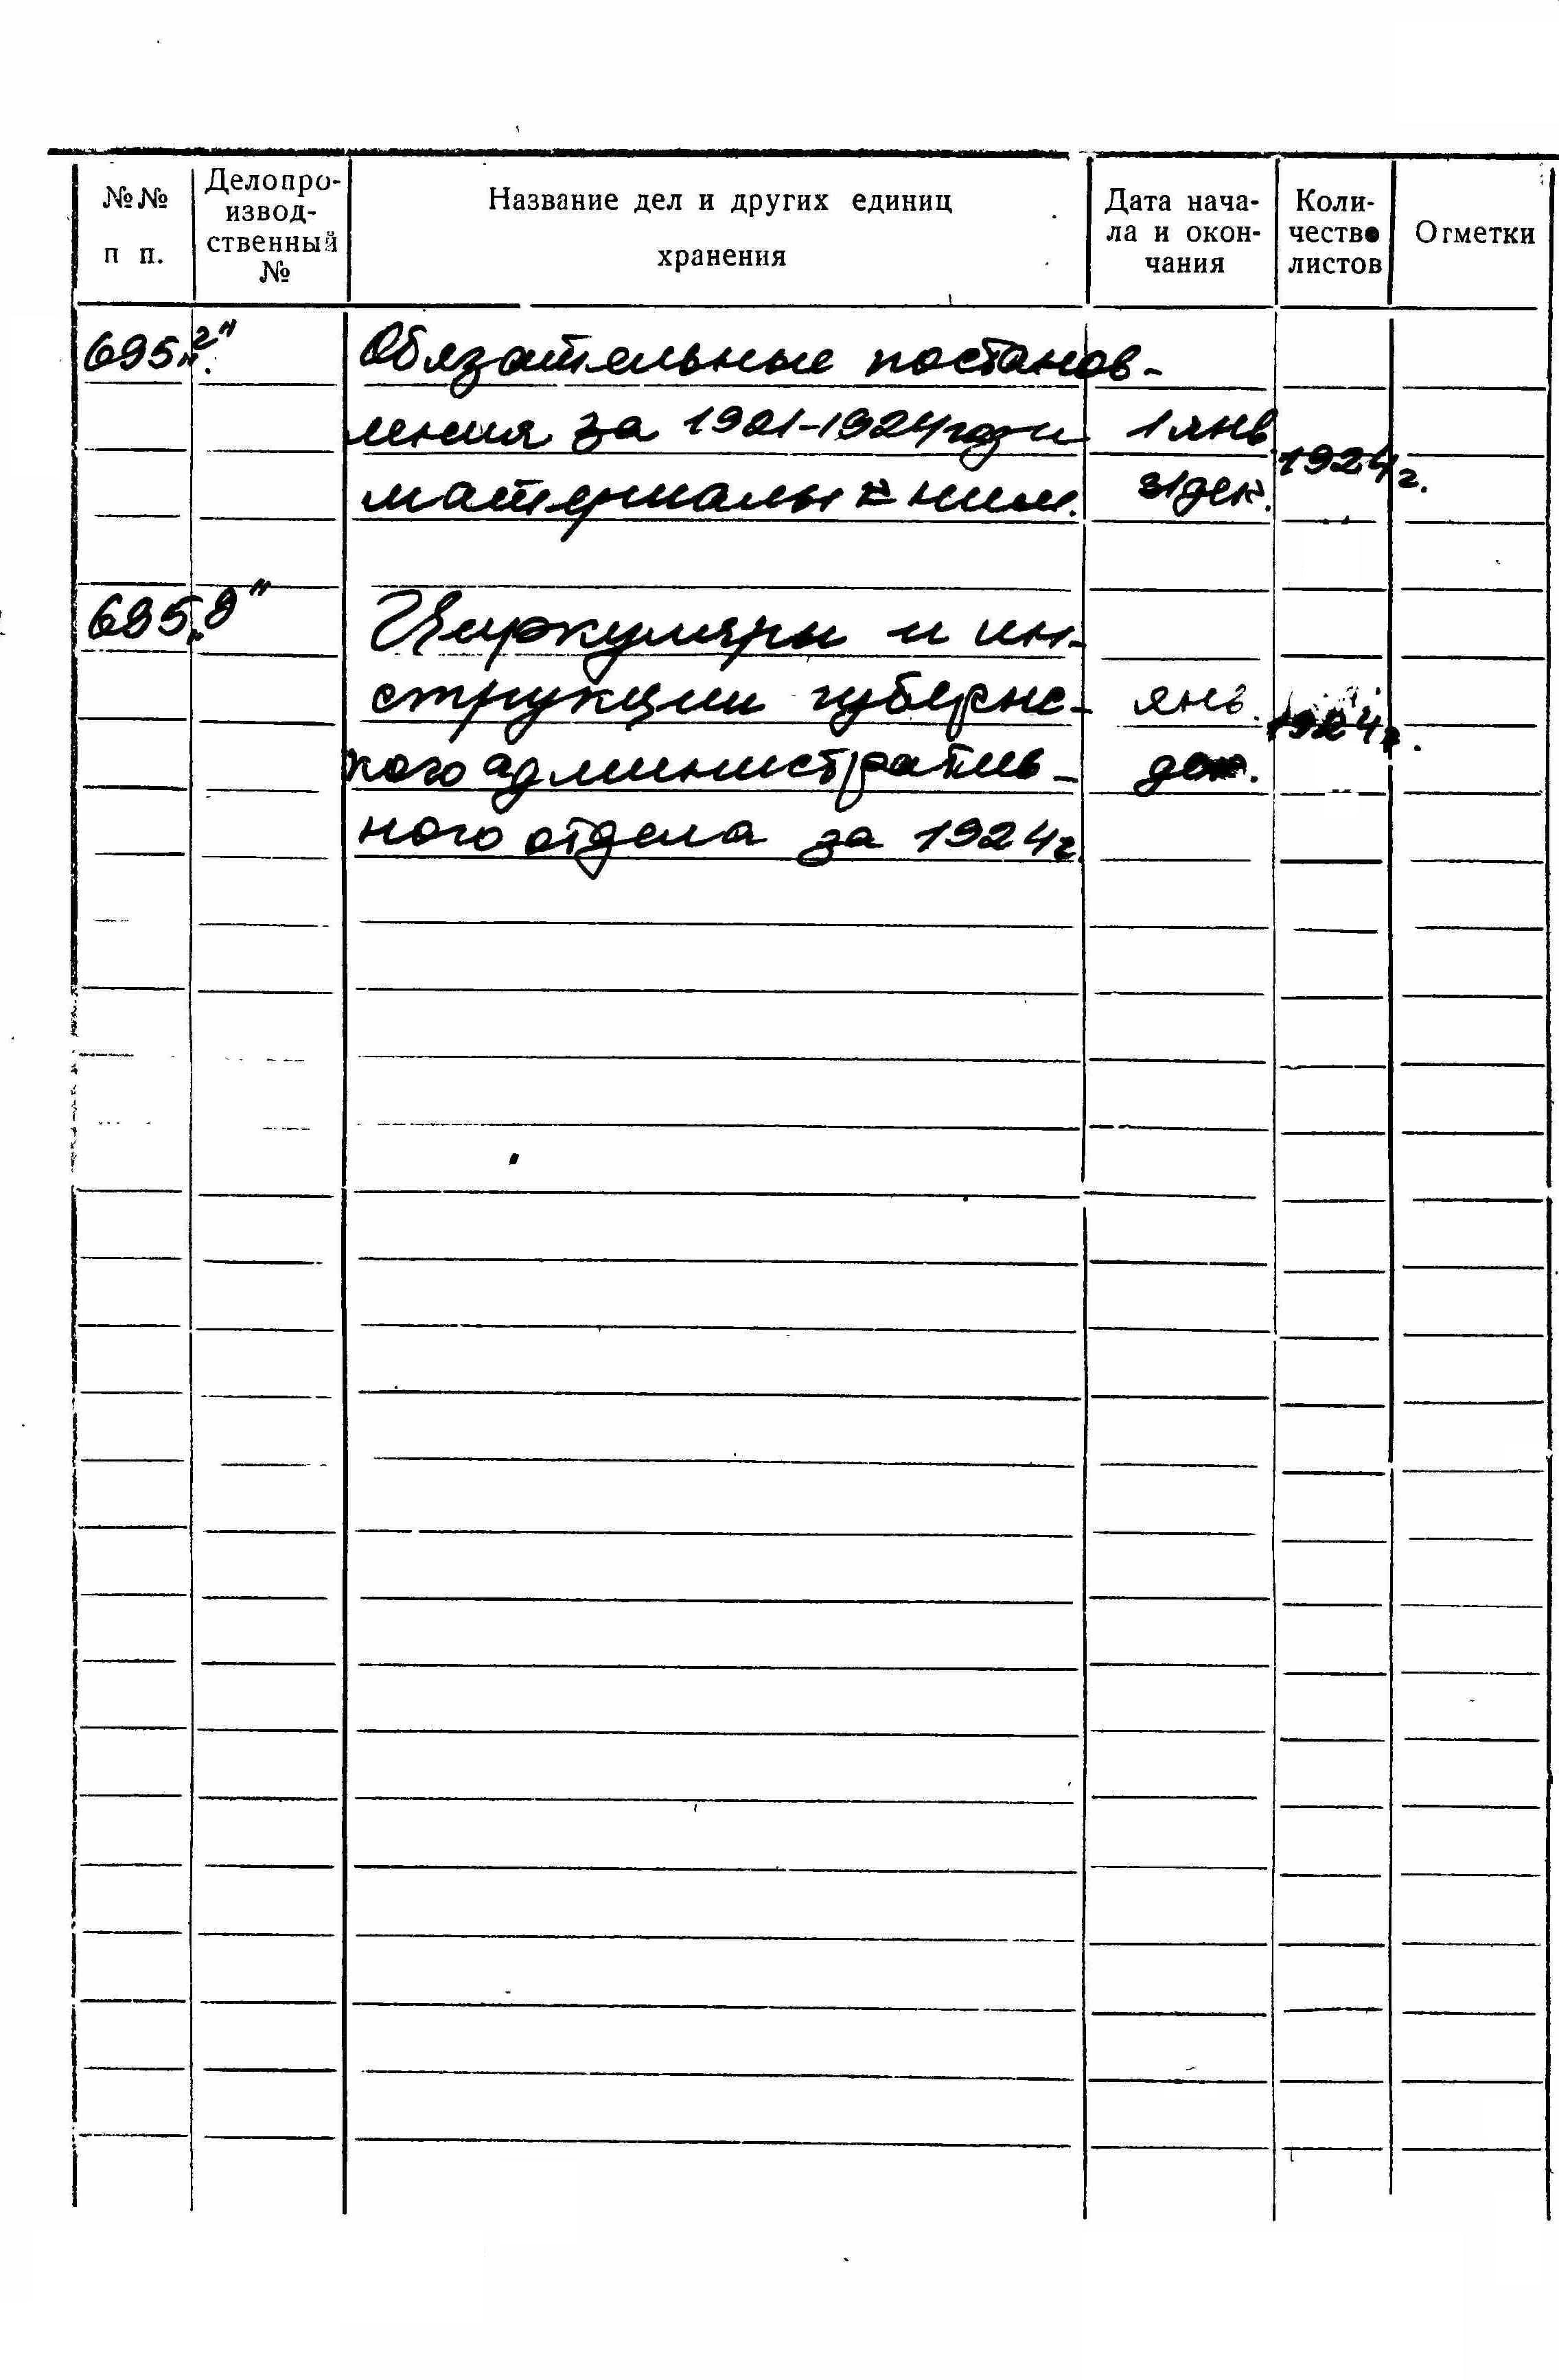 №№ п п.
Делопро-
извод-
ственный
№
Название дел и других единиц
хранения
Дата нача-
ла и окон-
чания
Коли-
чество
листов
Отметки
695 „г“. Обязательные постанов-
ления за 1921-1924 год и 1 янв. 1924 г.
материалы к ним. 31 дек.
695 „д“ Циркуляры и ин-
струкции губернс- янв. 1924 г.
кого административ- дек.
ного отдела за 1924 г.